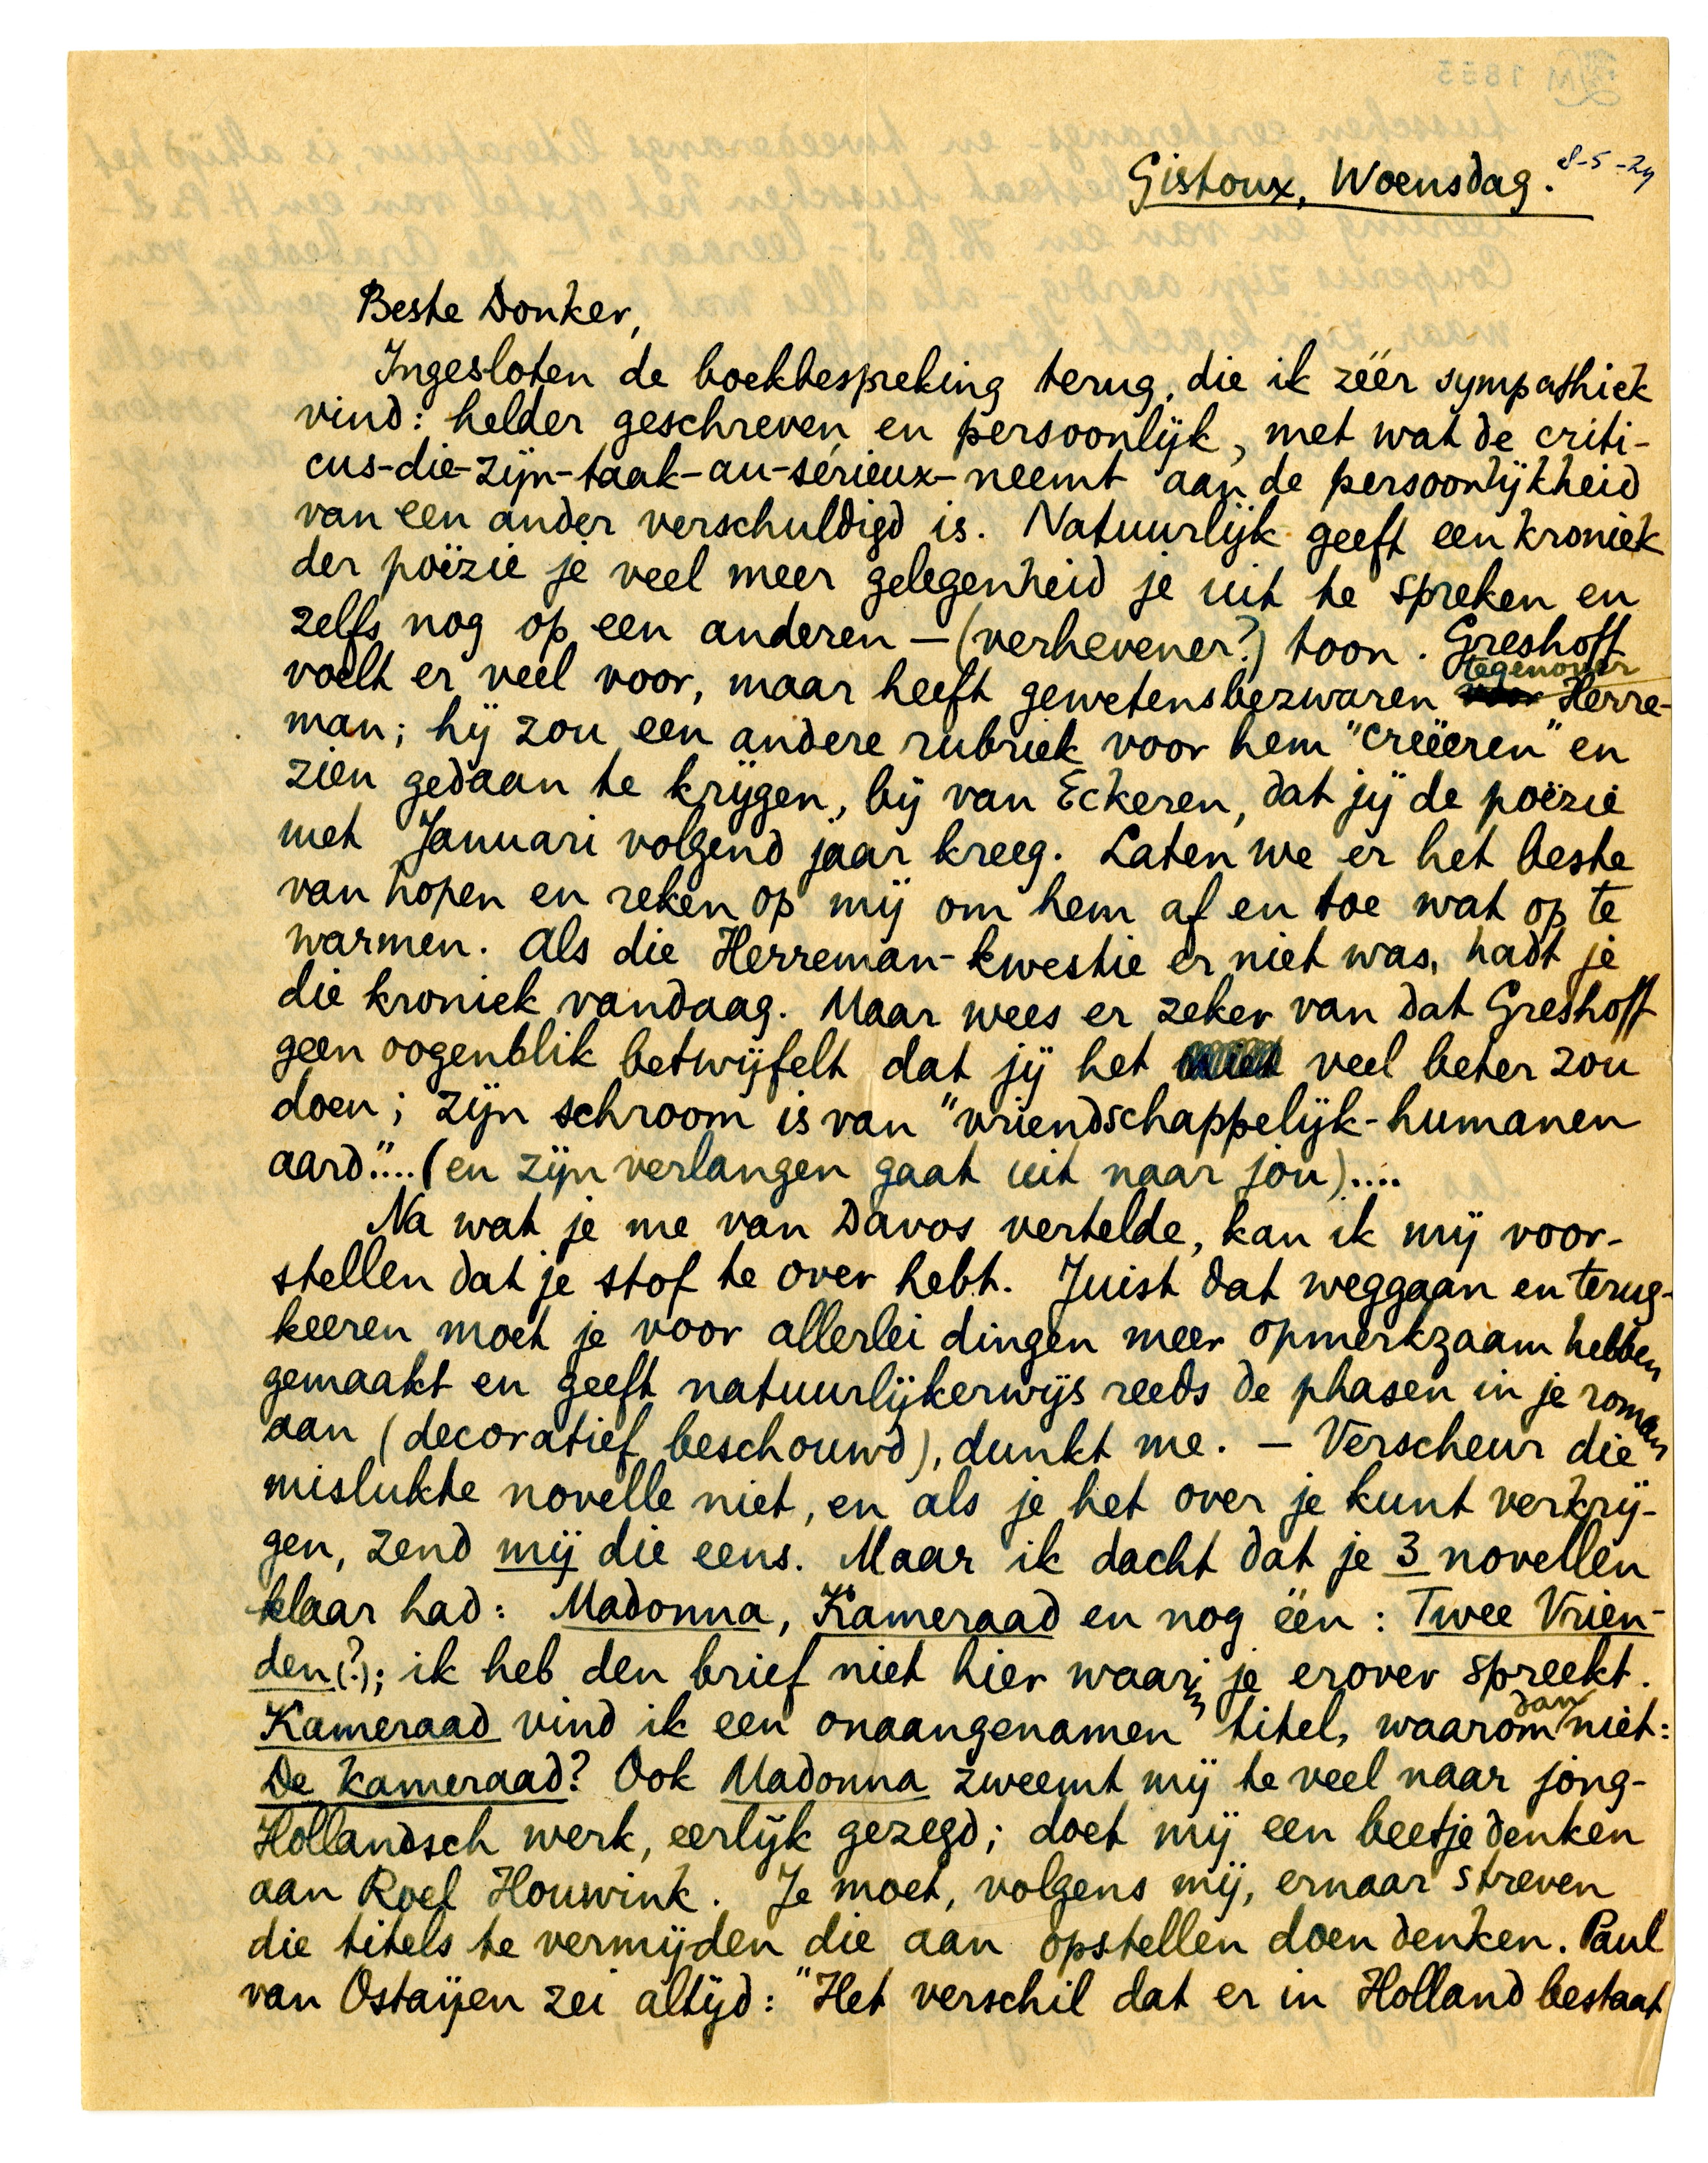 Gistoux, Woensdag. 8-5-29
Beste Donker,
Ingesloten de boekbespreking terug, die ik zéér sympathiek
vind: helder geschreven en persoonlijk, met wat de criti-
cus-die-zijn-taak-au-sérieux-neemt aan de persoonlijkheid
van een ander verschuldigd is. Natuurlijk geeft een kroniek
der poëzie je veel meer gelegenheid je uit te spreken en
zelfs nog op een anderen — (verhevener?) toon. Greshoff
voelt er veel voor, maar heeft gewetensbezwaren tegenover Herre-
man; hij zou een andere rubriek voor hem "creëeren" en
zien gedaan te krijgen, bij van Eckeren, dat jij de poëzie
met Januari volgend jaar kreeg. Laten we er het beste
van hopen en reken op mij om hem af en toe wat op te
warmen. Als die Herreman-kwestie er niet was, hadt je
die kroniek vandaag. Maar wees er zeker van dat Greshoff
geen oogenblik betwijfelt dat jij het veel beter zou
doen; zijn schroom is van "vriendschappelijk-humanen
aard".... (en zijn verlangen gaat uit naar jou)....
Na wat je me van Davos vertelde, kan ik mij voor-
stellen dat je stof te over hebt. Juist dat weggaan en terug-
keeren moet je voor allerlei dingen meer opmerkzaam hebben
gemaakt en geeft natuurlijkerwijs reeds de phasen in je roman
aan (decoratief beschouwd), dunkt me. — Verscheur die
mislukte novelle niet, en als je het over je kunt verkrij-
gen, zend mij die eens. Maar ik dacht dat je 3 novellen
klaar had: Madonna, Kameraad en nog één: Twee Vrien-
den(?); ik heb den brief niet hier waarin je erover spreekt.
Kameraad vind ik een onaangenamen titel, waarom dan niet:
De kameraad? Ook Madonna zweemt mij te veel naar jong-
Hollandsch werk, eerlijk gezegd; doet mij een beetje denken
aan Roel Houwink. Je moet, volgens mij, ernaar streven
die titels te vermijden die aan opstellen doen denken. Paul
van Ostaijen zei altijd: "Het verschil dat er in Holland bestaat